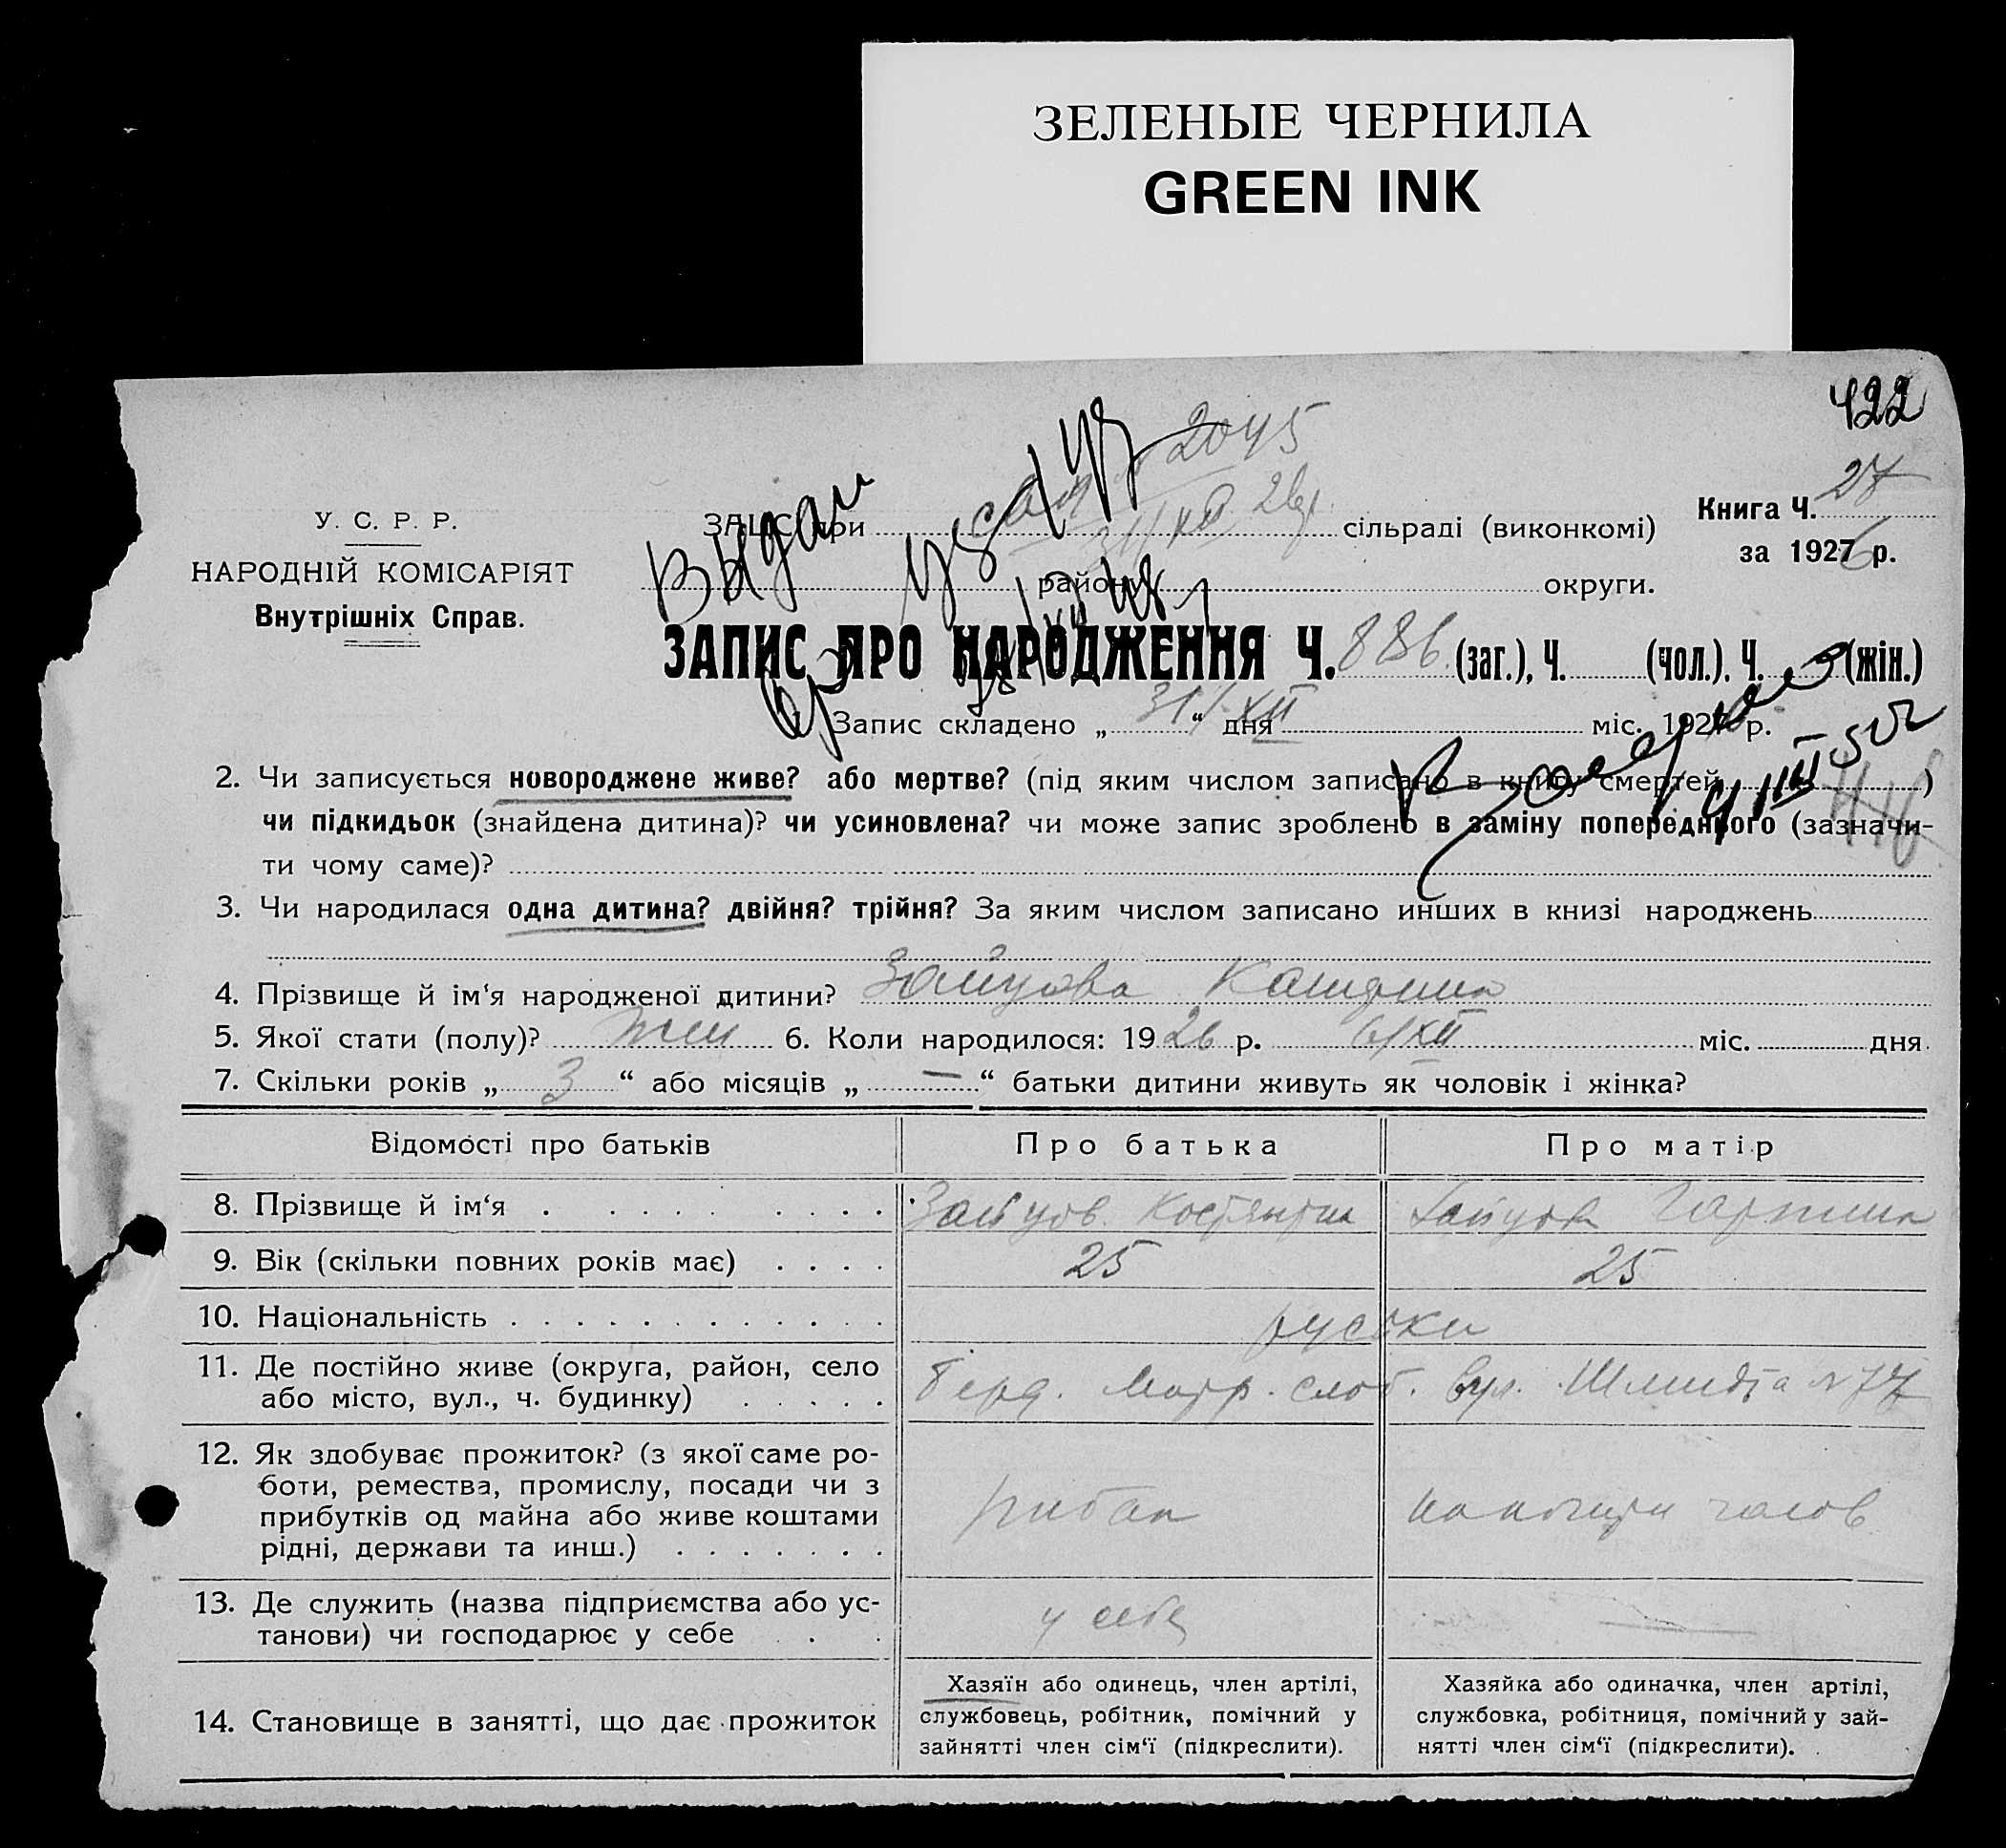 ЗЕЛЕНЫЕ ЧЕРНИЛА
GREEN INK
422
2045
У. С. Р. Р.
НАРОДНІЙ КОМІСАРІЯТ
Внутрішніх Справ.
Выдан
ЗАЦС при сільраді (виконкомі)
Книга Ч. 27
за 1926 р.
району округи.
ЗАПИС ПРО НАРОДЖЕННЯ Ч. 886 (заг.), Ч. (чол.), Ч. (жін.)
Запис складено „ 31 “ дня XII міс. 192 р.
2. Чи записується новороджене живе? або мертве? (під яким числом записано в книгу смертей )
чи підкидьок (знайдена дитина)? чи усиновлена? чи може запис зроблено в заміну попереднього (зазначи-
ти чому саме)?
3. Чи народилася одна дитина? двійня? трійня? За яким числом записано инших в книзі народжень
4. Прізвище й ім‘я народженої дитини? Зайцова
5. Якої стати (полу)? жін 6. Коли народилося: 1926 р. 6/XII міс. дня
7. Скільки років „ 3 “ або місяців „ — “ батьки дитини живуть як чоловік і жінка?
Відомості про батьків Про батька Про матір
8. Прізвище й ім‘я Зайцов Костянтин Зайцова
9. Вік (скільки повних років має) 25 25
10. Національність руські
11. Де постійно живе (округа, район, село Берд. Матр. слоб. вул. Шмидта № 77
або місто, вул., ч. будинку)
12. Як здобуває прожиток? (з якої саме ро-
боти, ремества, промислу, посади чи з
прибутків од майна або живе коштами
рідні, держави та инш.) рибак
13. Де служить (назва підприємства або ус-
танови) чи господарює у себе у себе —
14. Становище в занятті, що дає прожиток
Хазяїн або одинець, член артілі,
службовець, робітник, помічний у
зайнятті член сім‘ї (підкреслити).
Хазяйка або одиначка, член артілі,
службовка, робітниця, помічний у зай-
нятті член сім‘ї (підкреслити).